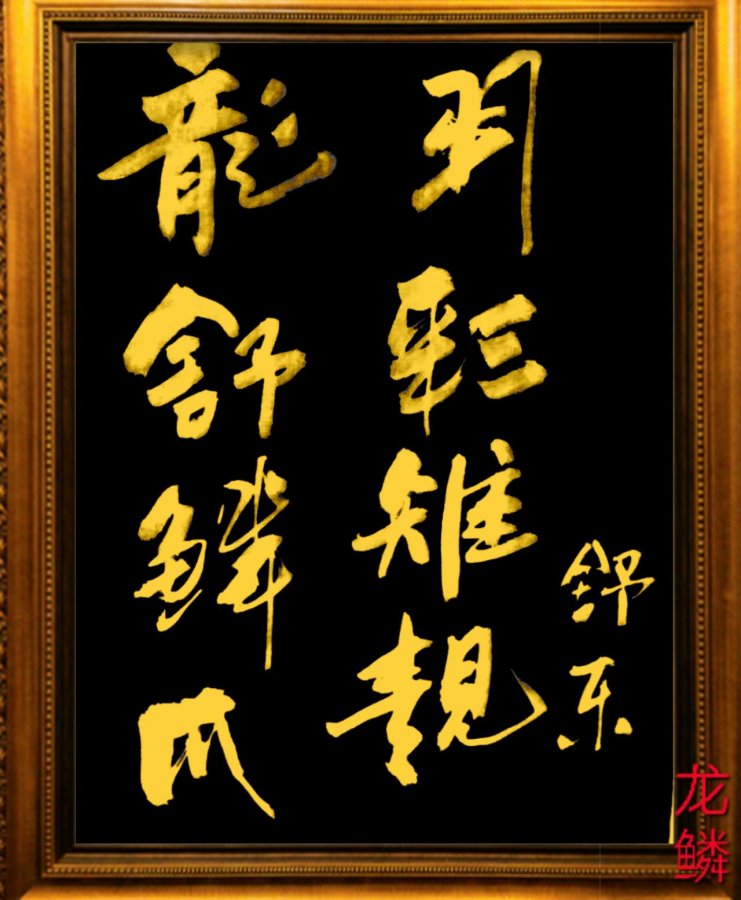 龍舒鱗爪
羽彩雉靚
舒东
龙鳞